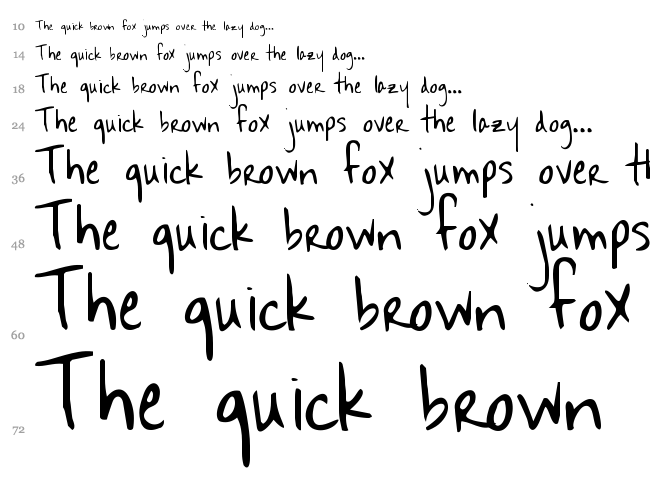 10 The quick brown fox jumps over the lazy dog...
14 The quick brown fox jumps over the lazy dog...
18 The quick brown fox jumps over the lazy dog...
24 The quick brown fox jumps over the lazy dog...
36 The quick brown fox jumps over th
48 The quick brown fox jumps
60 The quick brown fox
72 The quick brown